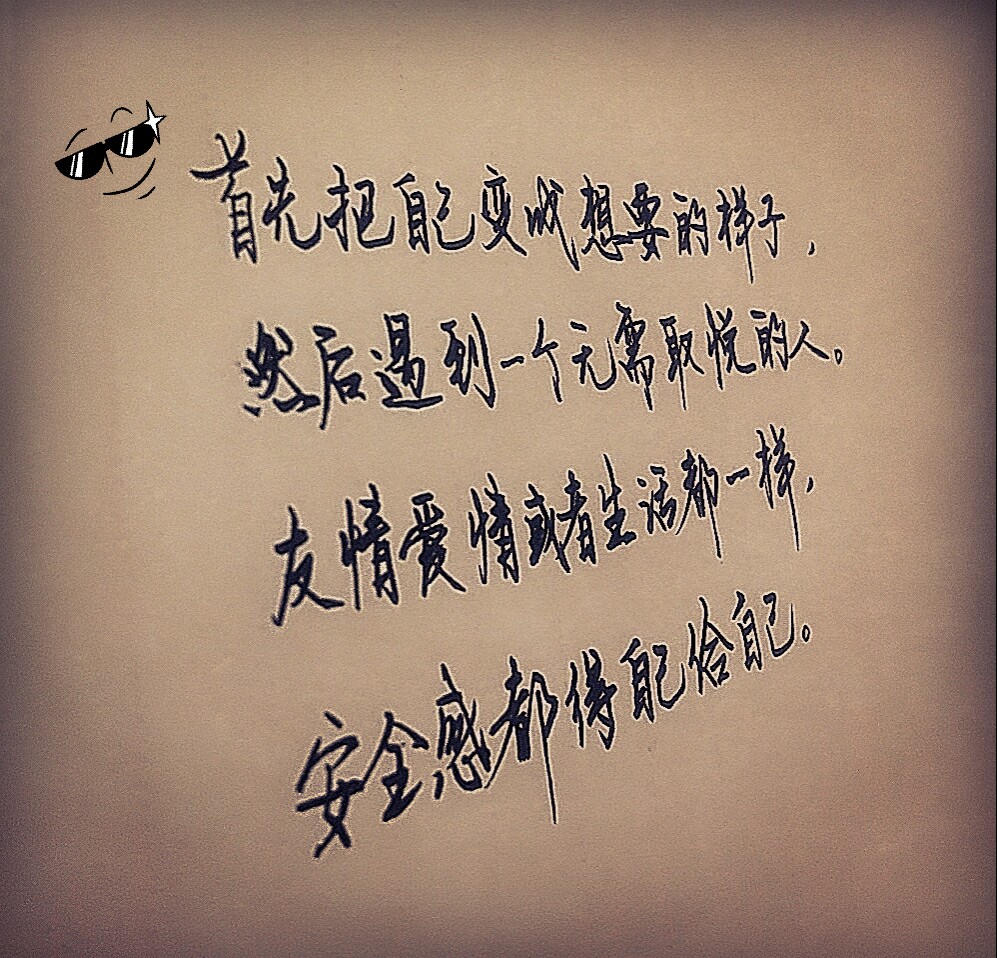 首先把自己变成想要的样子，
然后遇到一个无需取悦的人。
友情爱情或者生活都一样，
安全感都得自己给自己。